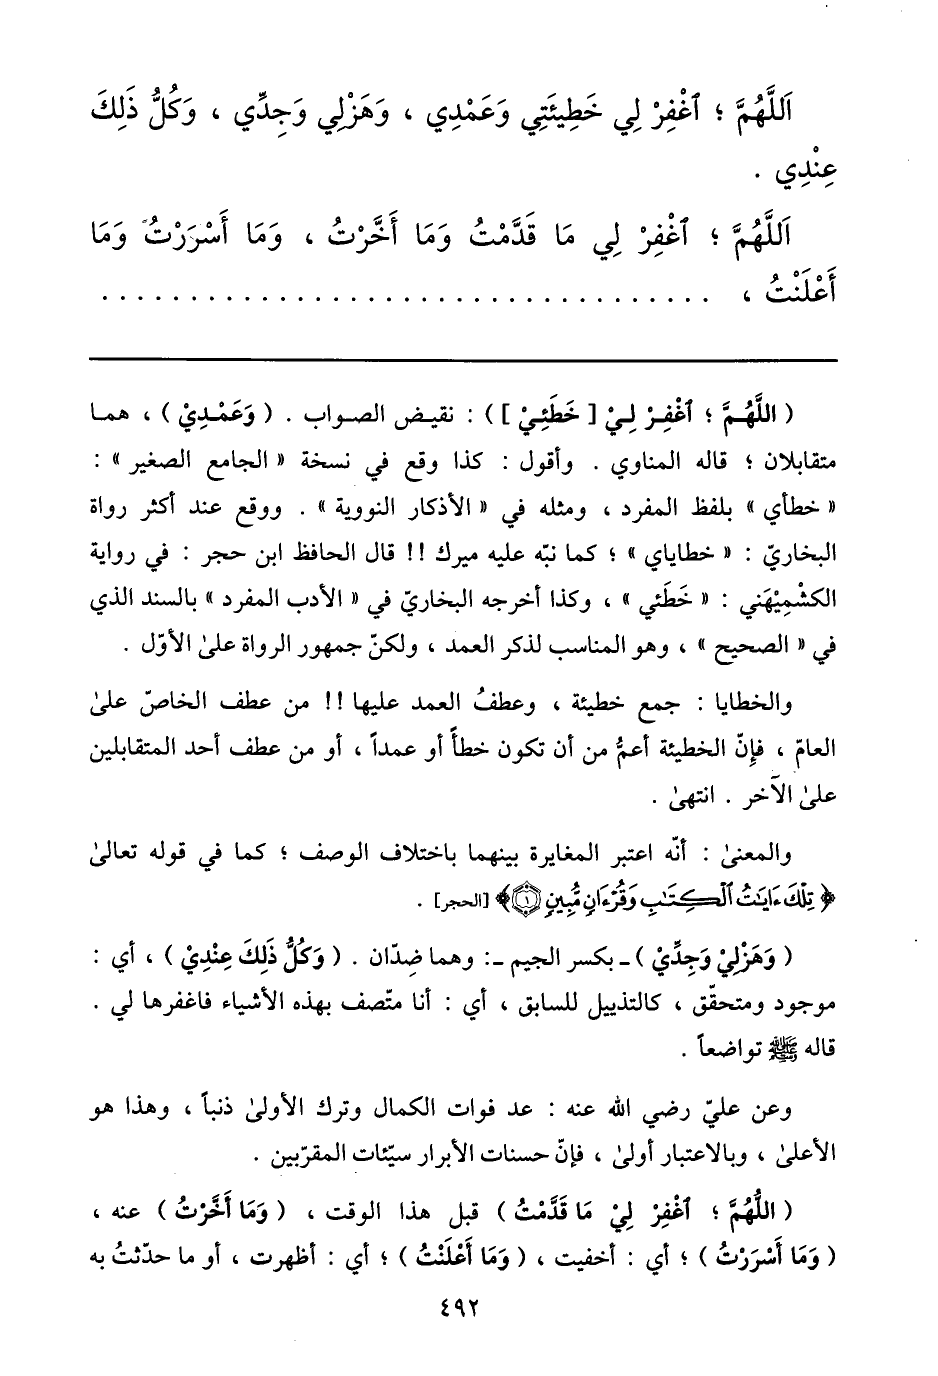 اَللَّهُمَّ ؛ ٱغْفِرْ لِي خَطِيئَتِي وَعَمْدِي ، وَهَزْلِي وَجِدِّي ، وَكُلُّ ذَلِكَ
عِنْدِي .
اَللَّهُمَّ ؛ ٱغْفِرْ لِي مَا قَدَّمْتُ وَمَا أَخَّرْتُ ، وَمَا أَسْرَرْتُ وَمَا
أَعْلَنْتُ ، . . . . . . . . . . . . . . . . . . . . . . . . . . . . . . . . . . .
( اللَّهُمَّ ؛ ٱغْفِرْ لِيْ [ خَطَئِيْ ] ) : نقيض الصواب . ( وَعَمْدِيْ ) ، هما
متقابلان ؛ قاله المناوي . وأقول : كذا وقع في نسخة « الجامع الصغير » :
« خطأي » بلفظ المفرد ، ومثله في « الأذكار النووية » . ووقع عند أكثر رواة
البخاريّ : « خطاياي » ؛ كما نبّه عليه ميرك !! قال الحافظ ابن حجر : في رواية
الكشْمِيْهَني : « خَطَئي » ، وكذا أخرجه البخاريّ في « الأدب المفرد » بالسند الذي
في « الصحيح » ، وهو المناسب لذكر العمد ، ولكنّ جمهور الرواة علىٰ الأوّل .
والخطايا : جمع خطيئة ، وعطفُ العمد عليها !! من عطف الخاصّ علىٰ
العامّ ، فإنّ الخطيئة أعمُّ من أن تكون خطأً أو عمداً ، أو من عطف أحد المتقابلين
علىٰ الآخر . انتهىٰ .
والمعنىٰ : أنّه اعتبر المغايرة بينهما باختلاف الوصف ؛ كما في قوله تعالىٰ
﴿ تِلْكَ ءَايَٰتُ ٱلْكِتَٰبِ وَقُرْءَانٍ مُّبِينٍ ۝١ ﴾ [الحجر] .
( وَهَزْلِيْ وَجِدِّيْ ) ـ بكسر الجيم ـ : وهما ضِدّان . ( وَكُلُّ ذَلِكَ عِنْدِيْ ) ، أي :
موجود ومتحقّق ، كالتذييل للسابق ، أي : أنا متّصف بهذه الأشياء فاغفرها لي .
قاله ﷺ تواضعاً .
وعن عليّ رضي الله عنه : عد فوات الكمال وترك الأولىٰ ذنباً ، وهذا هو
الأعلىٰ ، وبالاعتبار أولىٰ ، فإنّ حسنات الأبرار سيّئات المقرّبين .
( اللَّهُمَّ ؛ ٱغْفِرْ لِيْ مَا قَدَّمْتُ ) قبل هذا الوقت ، ( وَمَا أَخَّرْتُ ) عنه ،
( وَمَا أَسْرَرْتُ ) ؛ أي : أخفيت ، ( وَمَا أَعْلَنْتُ ) ؛ أي : أظهرت ، أو ما حدّثتُ به
٤٩٢